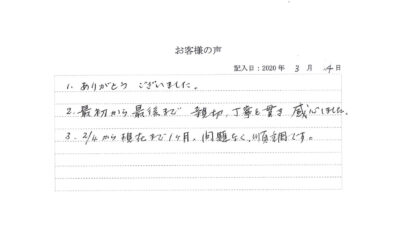 お客様の声
記入日：2020年 3月 4日
1. ありがとう ございました。
2. 最初から最後まで 親切、丁寧を貫き 感心しました。
3. 2/4から現在まで1ヶ月、問題なく、順調です。